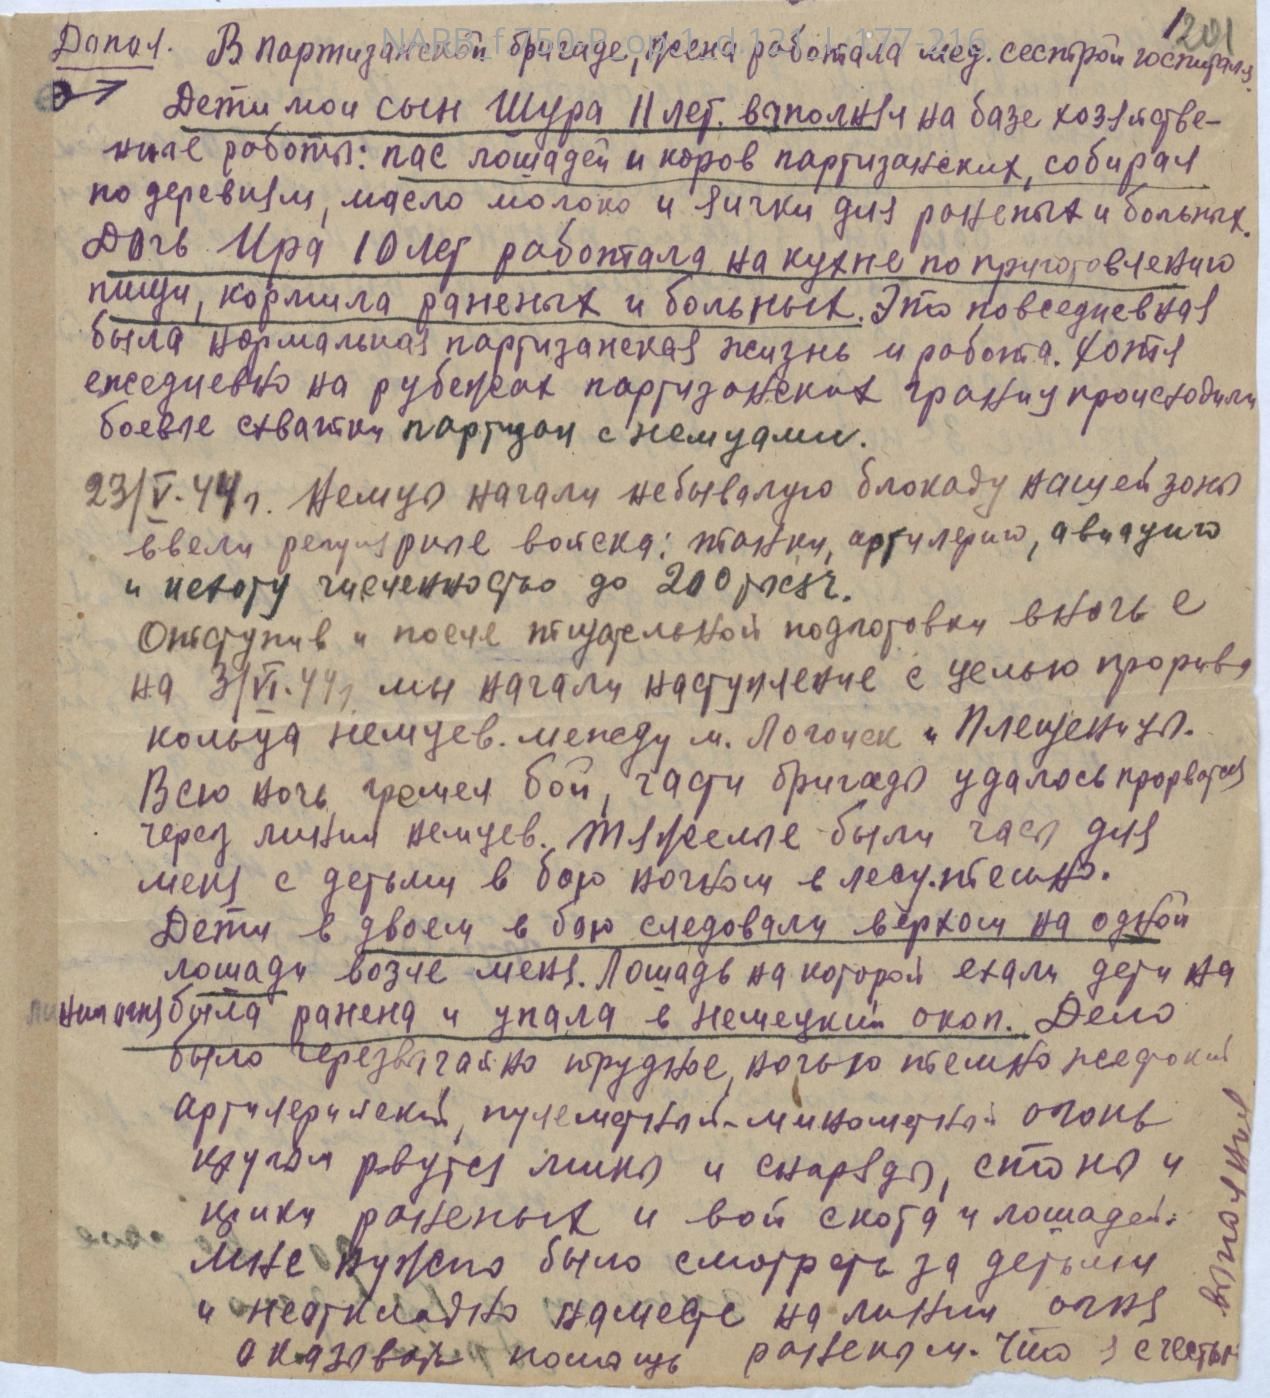 NARB_f.750-P_op.1_d.121_l.177_216
1201
Допол. В партизанской бригаде, жена работала мед. сестрой госпиталя.
Дети мои сын Шура 11 лет. выполнял на базе хозяйстве-
ные работы: пас лошадей и коров партизанских, собирал
по деревням, масло молоко и яички для раненых и больных.
Дочь Ира 10 лет работала на кухне по приготовлению
пищи, кормила раненых и больных. Это повседневная
была нормальная партизанская жизнь и работа. Хотя
ежедневно на рубежах партизанских границ происходили
боевые схватки партизан с немцами.
23/V-44 г. Немцы начали небывалую блокаду нашей зоны
ввели регулярные войска: танки, артилерию, авиацию
и пехоту численностью до 200 тысяч.
Отступив и после тщательной подготовки вночь с
на 3/VI-44 г. мы начали наступление с целью прорыва
кольца немцев. между м. Логойск и Плещеницы.
Всю ночь гремел бой, части бригады удалось прорватся
через линии немцев. Тяжелые были часы для
меня с детьми в бою ночном в лесу. темно.
Дети в двоем в бою следовали верхом на одной
лошади возле меня. Лошадь на которой ехали дети на
линии огня была ранена и упала в немецкий окоп. Дело
было черезвычайно трудное, ночью темно жестокий
артилерийский, пулеметный-минометный огонь
кругом рвутся мины и снаряды, стоны и
крики раненых и вой скота и лошадей.
Мне нужно было смотреть за детьми
и неоткладно наместе на линии огня
оказывать помощь раненым. Что я с честью
выполнил